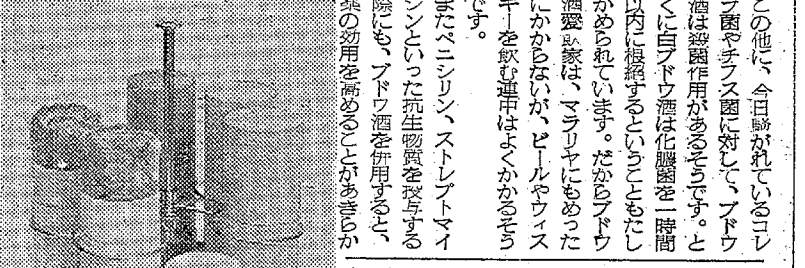 この他に、今日騒がれているコレ
ラ菌やチフス菌に対して、ブドウ
酒は殺菌作用があるそうです。と
くに白ブドウ酒は化膿菌を一時間
以内に根絶するということもたし
かめられています。だからブドウ
酒愛飲家は、マラリヤにもめった
にかからないが、ビールやウィス
キーを飲む連中はよくかかるそう
です。
またペニシリン、ストレプトマイ
シンといった抗生物質を投与する
際にも、ブドウ酒を併用すると、
薬の効用を高めることがあきらか